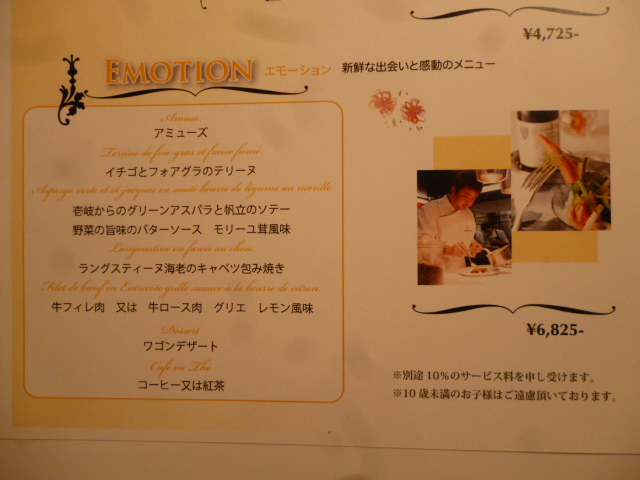 ¥4,725-
EMOTION エモーション 新鮮な出会いと感動のメニュー
Amuse.
アミューズ
Terrine de foie-gras et fraise fumé.
イチゴとフォアグラのテリーヌ
Asperge verte et st-jacques en sauté beurre de légume au morille.
壱岐からのグリーンアスパラと帆立のソテー
野菜の旨味のバターソース モリーユ茸風味
Langoustine en farcie au chou.
ラングスティーヌ海老のキャベツ包み焼き
Filet de bœuf ou Entrecôte grille sauce à la beurre de citron.
牛フィレ肉 又は 牛ロース肉 グリエ レモン風味
Dessert
ワゴンデザート
Café ou Thé
コーヒー又は紅茶
¥6,825-
※別途10%のサービス料を申し受けます。
※10歳未満のお子様はご遠慮頂いております。